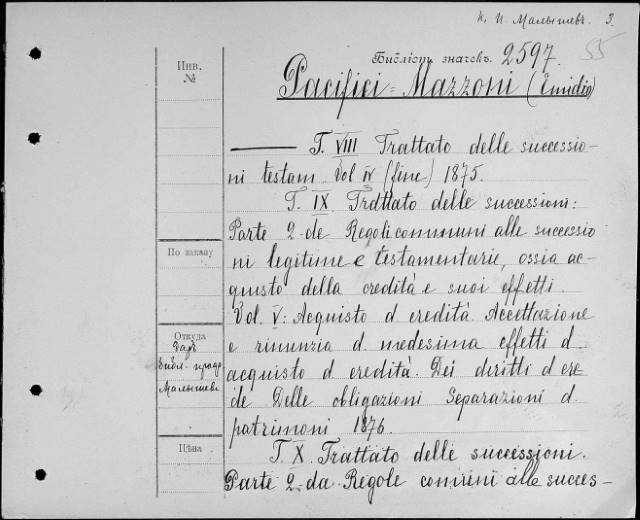 К. И. Малышевъ. 3.
Библіот. значекъ. 2597. 55
Инв.
№
Pacifici-Mazzoni (Emidio)
T. VIII Trattato delle successio-
ni testam. Vol IV (fine) 1875.
T. IX. Trattato delle successioni:
Parte 2-da Regoli communi alle successio
ni legitime e testamentarie, ossia ac-
quisto della credità e suoi effetti.
Vol. V: Acquisto d eredità Accettazione
e rinunzia d. medesima effetti d.
acquisto d eredità. Dei diritti d ere
de Delle obligazioni Separazioni d.
patrimoni 1876.
T. X. Trattato delle successioni.
Parte 2-da Regole comuni alle succes-
По заказу
Откуда
Даръ
Библ.
Малышева
Цѣна